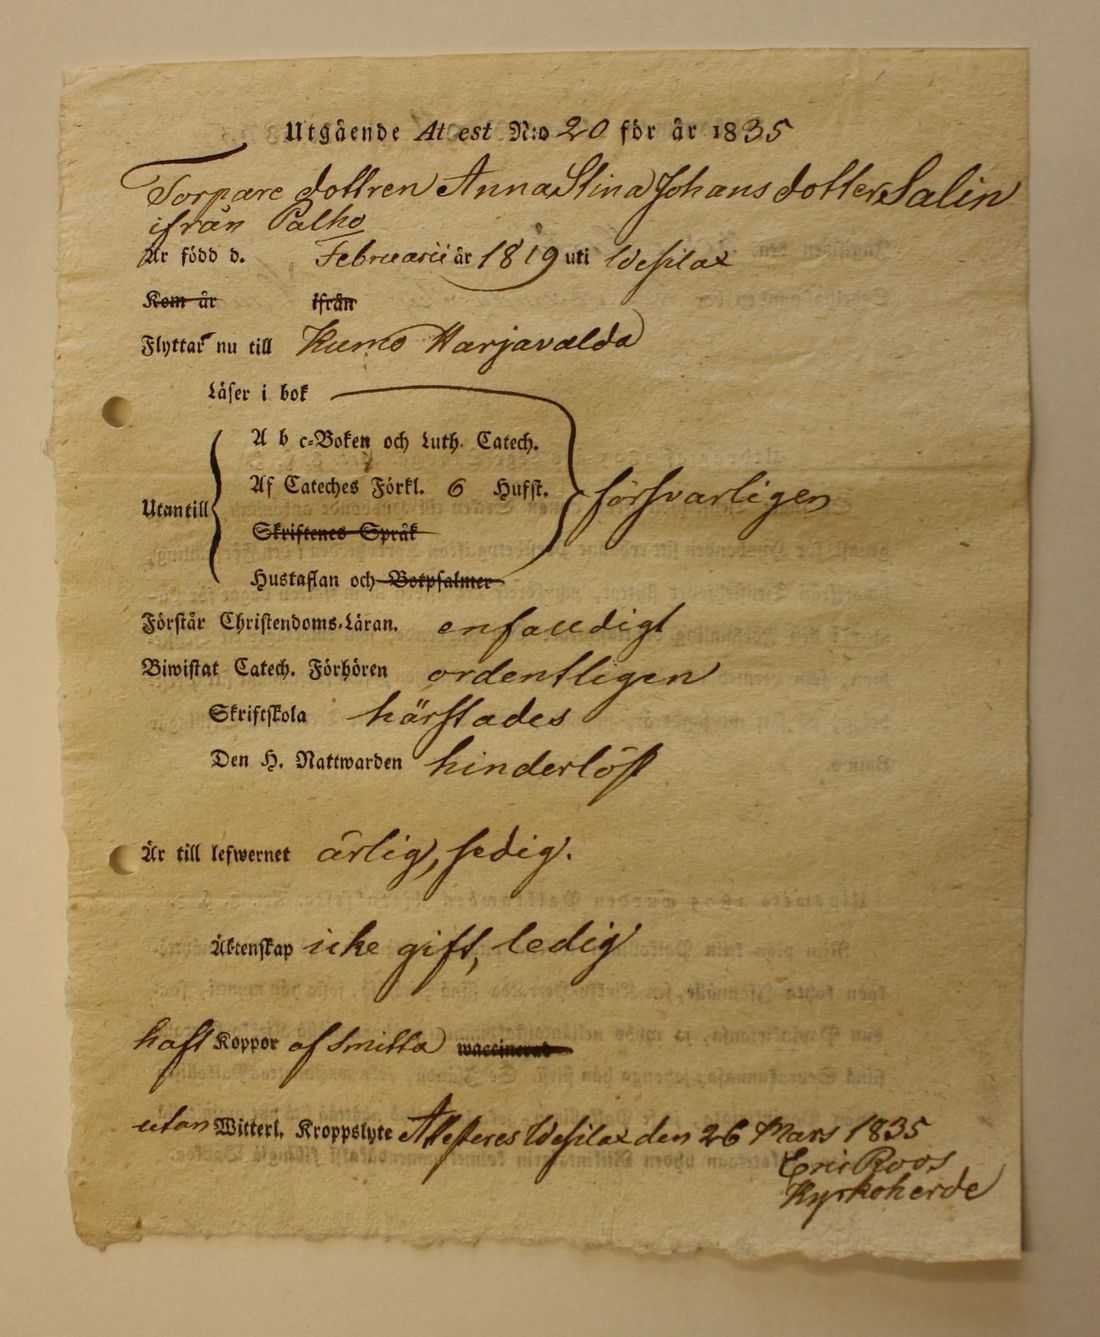 Utgående Attest N:o 20 för år 1835
Torpare dottren Anna Stina Johans dotter Salin
ifrån Palho
Är född d. Februarii år 1819 uti Wesilax
Kom år ifrån
Flyttar nu till Kumo Harjavalda
Läser i bok
A b c-Boken och Luth. Catech.
Af Cateches Förkl. 6 Hufst.
Utantill försvarligen
Skriftenes Språk
Hustaflan och Botpsalmer
Förstår Christendoms-Läran. enfalldigt
Biwistat Catech. Förhören ordentligen
Skriftskola härstades
Den H. Nattwarden hinderlöst
Är till lefwernet ärlig, sedig.
Äktenskap icke gift, ledig
haft Koppor af Smitta waccinerad
utan Witterl. Kroppslyte Attesteres Wesilax den 26 Mars 1835
Eric Roos
Kyrkoherde